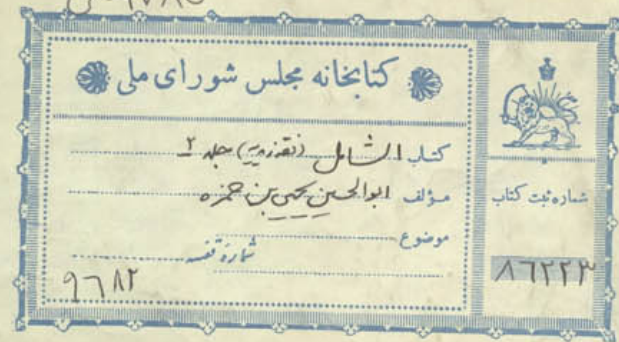 کتابخانه مجلس شورای ملی
کتاب الشامل (فقه زیدیه) جلد ۲
مؤلف ابوالحسن یحیی بن حمزه
موضوع
شماره قفسه
۹۶۸۲
شماره ثبت کتاب
۸۶۲۲۳